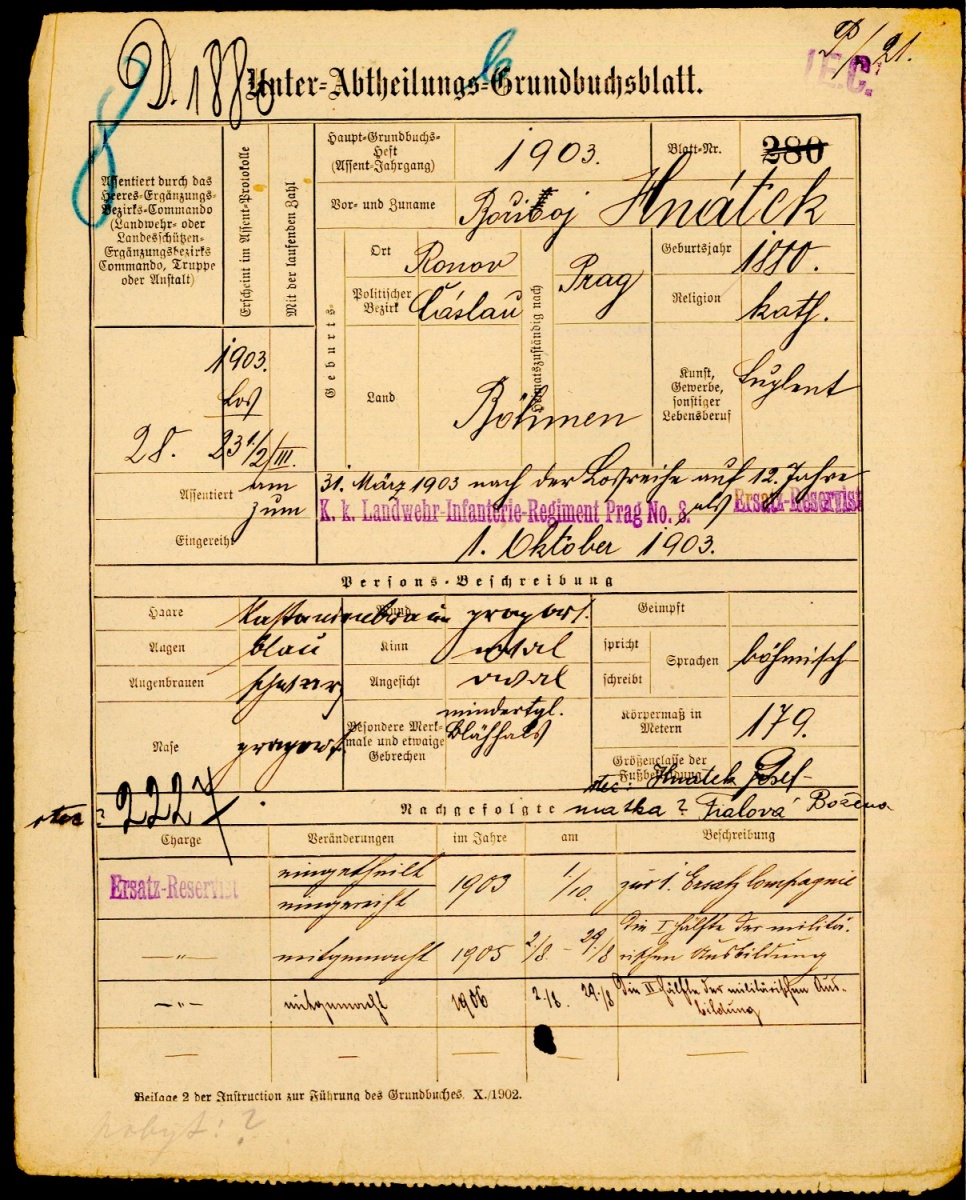 D. 188
P/21.
I.E.C.
Unter-Abtheilungs-Grundbuchsblatt.
Assentiert durch das
Heeres-Ergänzungs-
Bezirks-Commando
(Landwehr- oder
Landesschützen-
Ergänzungsbezirks
Commando, Truppe
oder Anstalt)
Erscheint im Assent-Protokolle
Mit der laufenden Zahl
Haupt-Grundbuchs-
Heft
(Assent-Jahrgang)
1903.
Blatt-Nr.
280
Vor- und Zuname
Bořiboj Hnátek
Geburts-
Ort
Ronov
Politischer
Bezirk
Čáslau
Land
Heimatszuständig nach
Prag
Böhmen
Geburtsjahr
1880.
Religion
kath.
Kunst,
Gewerbe,
sonstiger
Lebensberuf
1903.
Los
28.
23 1/2/III.
Assentiert
am
31. März 1903 nach der Losreihe auf 12 Jahre
zum
K. k. Landwehr-Infanterie-Regiment Prag No. 8.
als
Ersatz-Reservist
Eingereiht
1. Oktober 1903.
Persons-Beschreibung
Haare
Kastanienbraun
Mund
proport.
Augen
blau
Kinn
oval
Augenbrauen
schwarz
Angesicht
oval
Nase
proport.
Besondere Merk-
male und etwaige
Gebrechen
mindertgl.
Blähhals
Geimpft
spricht
schreibt
Sprachen
böhmisch
Körpermaß in
Metern
179.
Größenclasse der
Fußbekleidung
otec: Hnatek Josef
otec ?
2227
Nachgefolgte
matka ? Fialová Božena
Charge
Veränderungen
im Jahre
am
Beschreibung
Ersatz-Reservist
eingetheilt
eingereiht
1903
1/10.
zur 1. Ersatz Compagnie
—"—
mitgemacht
1905
2/8. - 29/8
die I Hälfte der militä-
rischen Ausbildung
—"—
mitgemacht
1906
2./8. 29./8
die II Hälfte der militärischen Aus-
bildung
Beilage 2 der Instruction zur Führung des Grundbuches. X./1902.
pobyt: ?